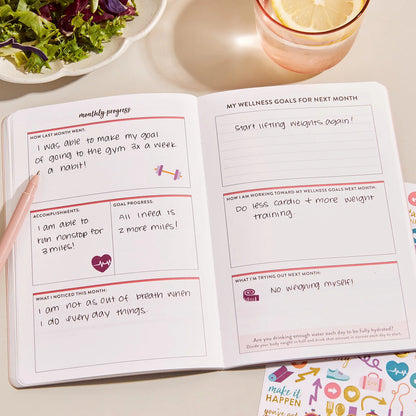 monthly progress
HOW LAST MONTH WENT:
I was able to make my goal
of going to the gym 3x a week
a habit!
ACCOMPLISHMENTS:
I am able to
run nonstop for
3 miles!
GOAL PROGRESS:
All I need is
2 more miles!
WHAT I NOTICED THIS MONTH:
I am not as out of breath when
I do everyday things.
MY WELLNESS GOALS FOR NEXT MONTH
Start lifting weights again!
HOW I AM WORKING TOWARD MY WELLNESS GOALS NEXT MONTH:
Do less cardio + more weight
training.
WHAT I'M TRYING OUT NEXT MONTH:
No weighing myself!
Are you drinking enough water each day to be fully hydrated?
Divide your body weight in half and drink that amount in ounces each day to start.
make it
HAPPEN